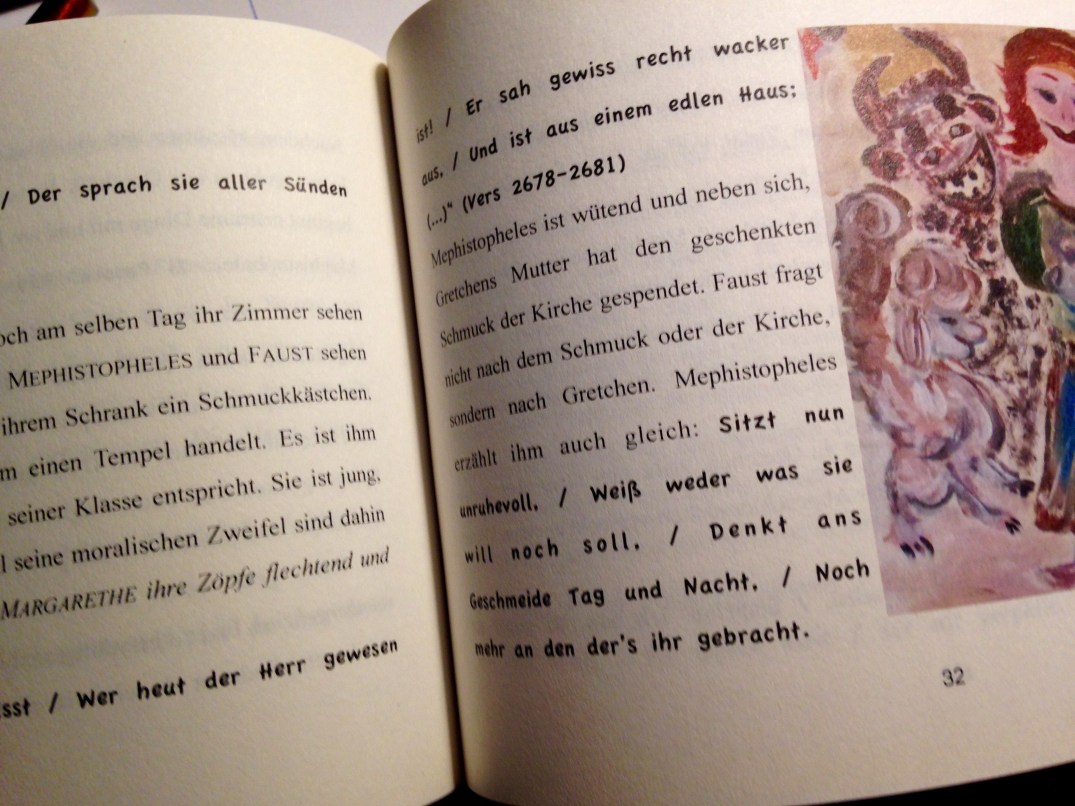 / Der sprach sie aller Sünden
am selben Tag ihr Zimmer sehen
MEPHISTOPHELES und FAUST sehen
ihrem Schrank ein Schmuckkästchen.
einen Tempel handelt. Es ist ihm
seiner Klasse entspricht. Sie ist jung,
seine moralischen Zweifel sind dahin
MARGARETHE ihre Zöpfe flechtend und
/ Wer heut der Herr gewesen
ist! / Er sah gewiss recht wacker
aus, / Und ist aus einem edlen Haus;
(...)" (Vers 2678-2681)
Mephistopheles ist wütend und neben sich,
Gretchens Mutter hat den geschenkten
Schmuck der Kirche gespendet. Faust fragt
nicht nach dem Schmuck oder der Kirche,
sondern nach Gretchen. Mephistopheles
erzählt ihm auch gleich: Sitzt nun
unruhevoll, / Weiß weder was sie
will noch soll, / Denkt ans
Geschmeide Tag und Nacht, / Noch
mehr an den der's ihr gebracht.
32